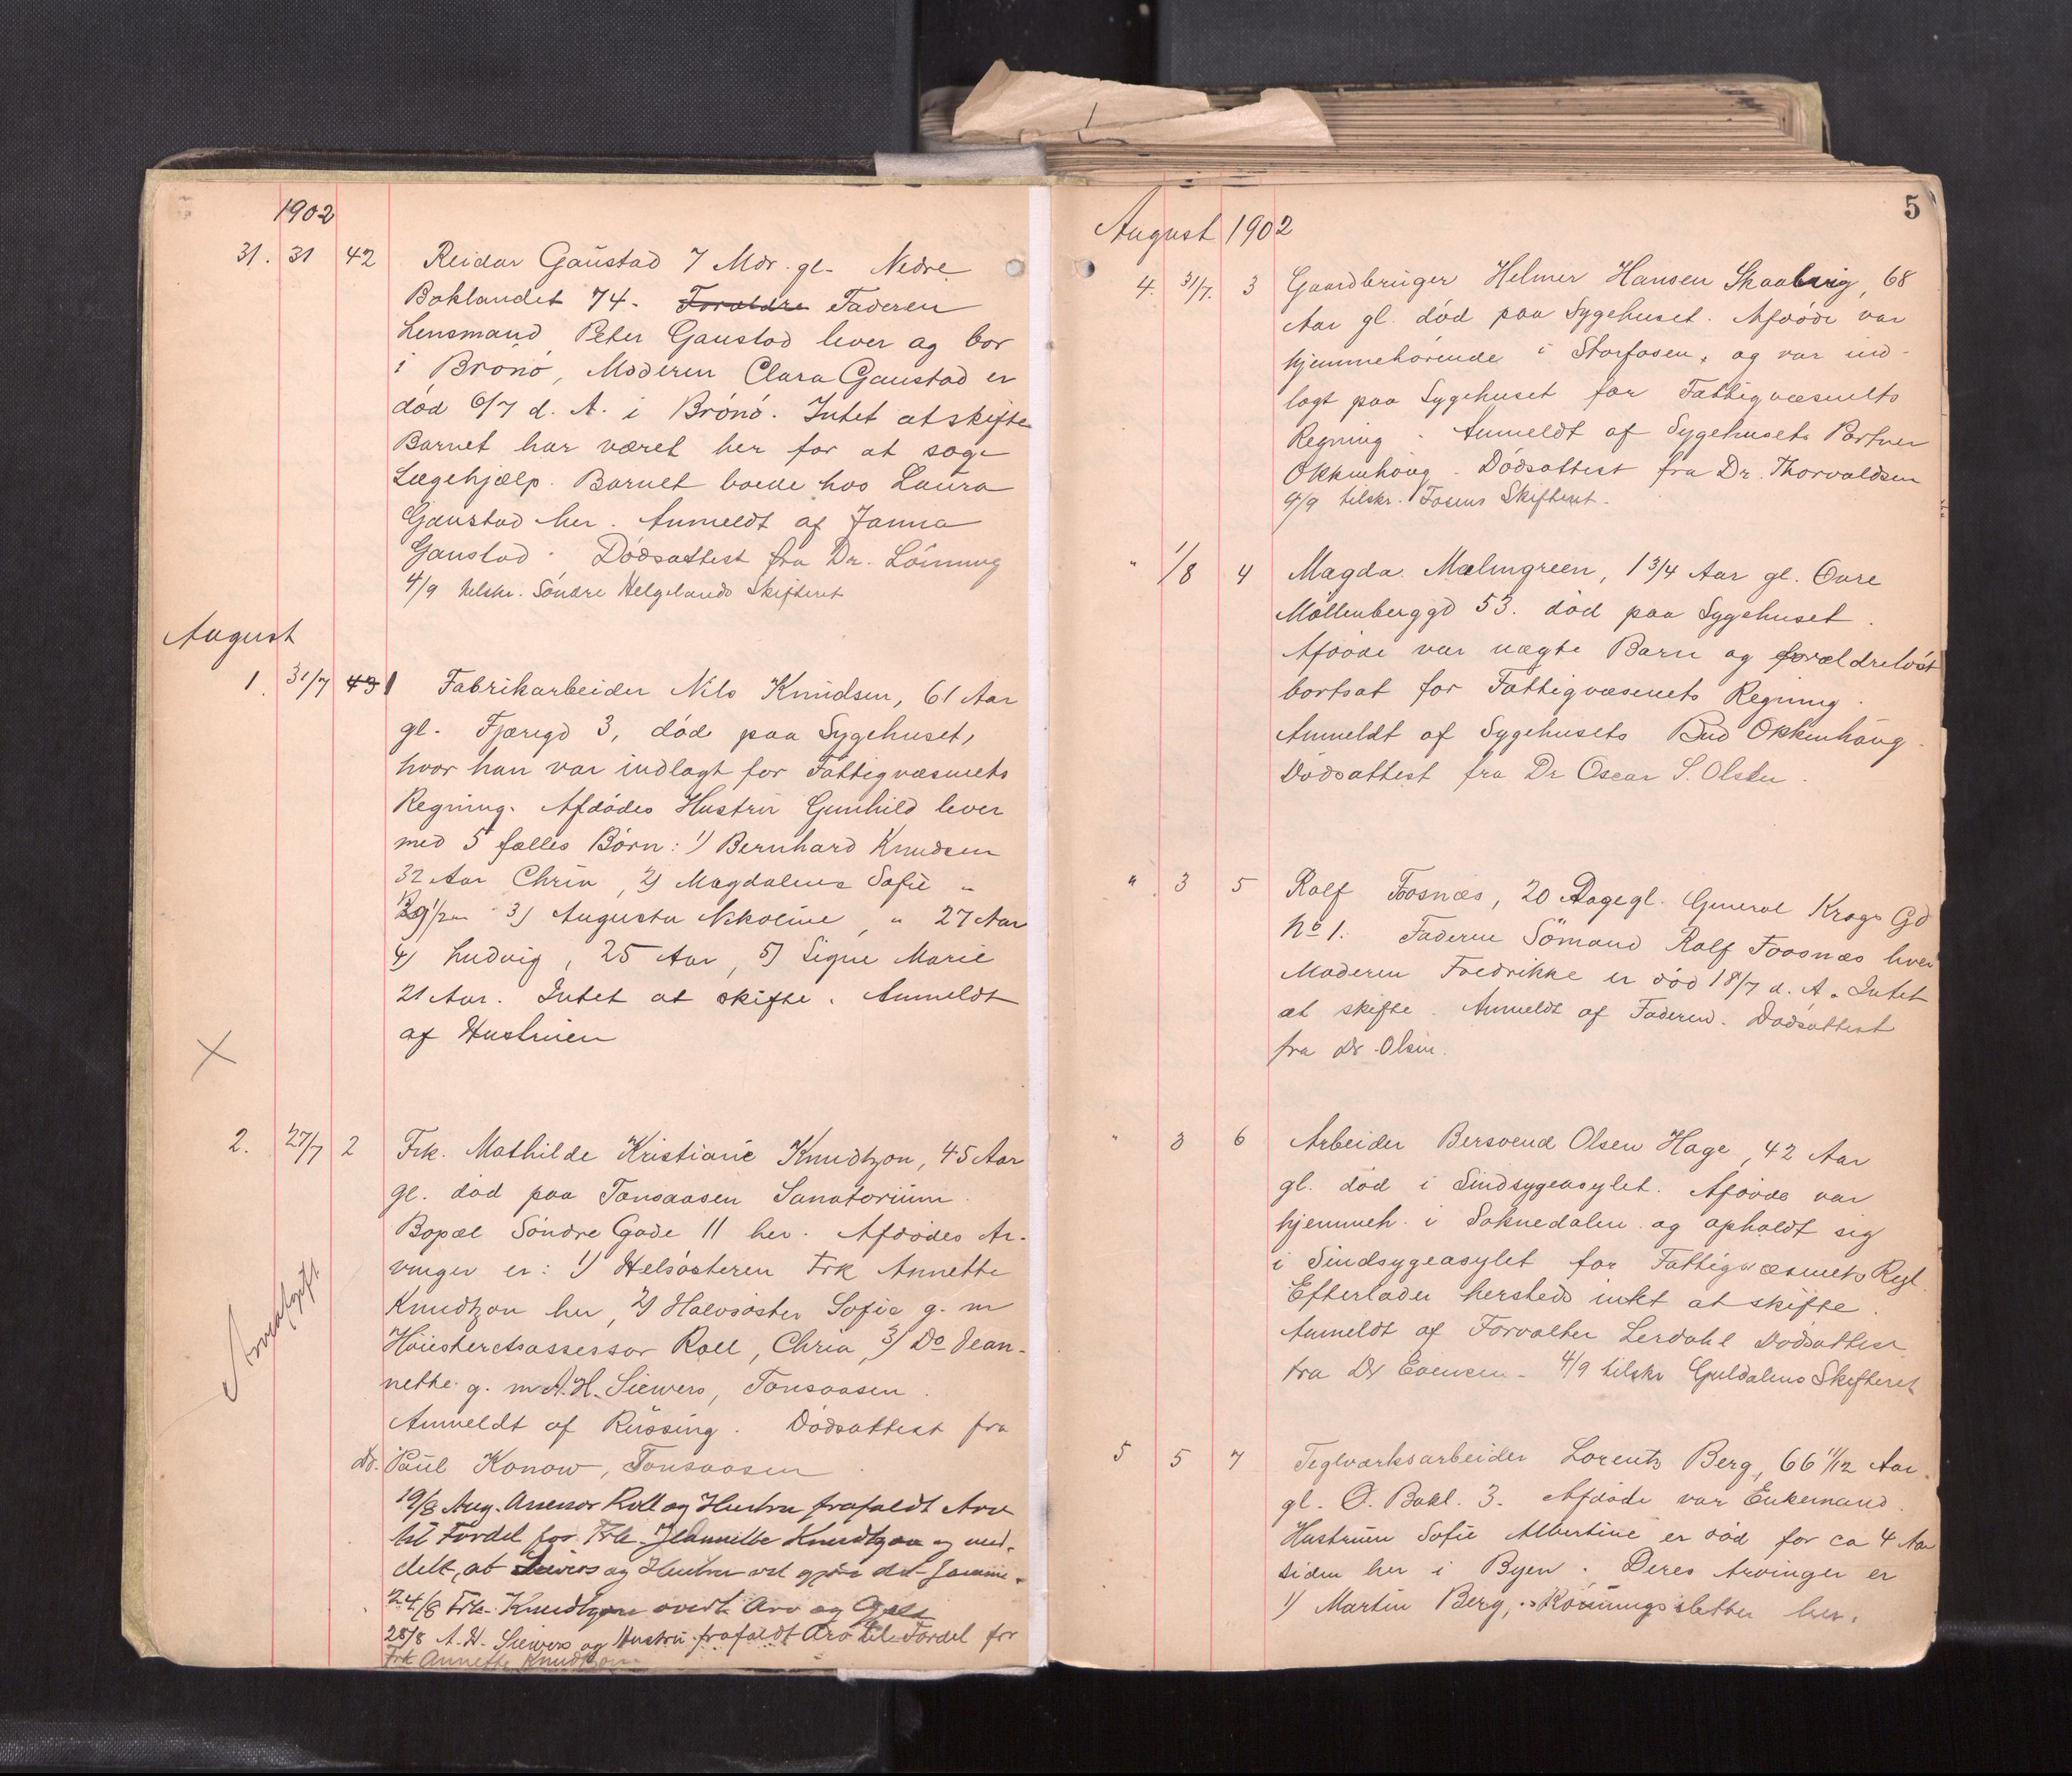 1902
31. 31 42 Reidar Gaustad 7 Mdr. gl. Nedre
Baklandet 74. Forældre Faderen
Lensmand Peter Gaustad lever og bor
i Brönö, Moderen Clara Gaustad er
död 6/7 d. A. i Brönö. Intet at skifte
Barnet har været her for at søge
Lægehjælp. Barnet boede hos Laura
Gaustad her. Anmeldt af Janna
Gaustad. Dödsattest fra Dr. Lönning
4/9 tilskr. Söndre Helgelands Skifteret
August
1. 31/7 43 1 Fabrikarbeider Nils Knudsen, 61 Aar
gl. Fjæregd 3, döde paa Sygehuset,
hvor han var indlagt for Fattigvæsenets
Regning. Afdödes Hustru Gunhild lever
med 5 fælles Börn: 1) Bernhard Knudsen
32 Aar Chria, 2) Magdalena Sofie "
3) Augusta Nikoline, " 27 Aar
4) Ludvig, 25 Aar, 5) Signe Marie
21 Aar. Intet at skifte. Anmeldt
af Hustruen
2. 27/7 2 Frk. Mathilde Kristiane Knudtzon, 45 Aar
gl. död paa Tonsaasen Sanatorium.
Bopæl Söndre Gade 11 her. Afdödes Ar-
vinger er: 1) Helsösteren Frk Annette
Knudtzon her, 2) Halvsöster Sofie g. m
Höiesteretsassessor Roll, Chria, 3) Do Jean-
nethe g. m A. H. Siewers, Tonsaasen.
Arveafgift
Anmeldt af Rüssing. Dödsattest fra
Dr. Paul Konow, Tonsaasen
19/8 Aug. Assessor Roll og Hustru frafaldt Arv
til Fordel for Frk. Jeannette Knudtzon og med-
delt, at Siewers og Hustru vil gjöre det samme.
24/8 Frk. Knudtzon overt. Arv og Gjeld
28/8 A. H. Siewers og Hustru frafaldt Arv til Fordel for
Frk Annette Knudtzon
5
August 1902
4. 31/7. 3 Gaardbruger Helmer Hansen 68
Aar gl. död paa Sygehuset. Afdöde var
hjemmehörende i Storfosen, og var ind-
lagt paa Sygehuset for Fattigvæsenets
Regning. Anmeldt af Sygehusets Portner
Okkenhaug. Dödsattest fra Dr. Thorvaldsen
4/9 tilskr. Fosens Skifteret.
" 1/8 4 Magda Malmgreen, 1 3/4 Aar gl. Övre
Möllenberggd 53. död paa Sygehuset.
Afdöde var uægte Barn og forældrelöst
bortsat for Fattigvæsenets Regning.
Anmeldt af Sygehusets Bud Okkenhaug.
Dödsattest fra Dr Oscar S. Olsen.
" 3 5 Rolf Foosnæs, 20 Dage gl. General Krogs Gd
No 1. Faderen Sömand Rolf Foosnæs lever
Moderen Fredrikke er död 18/7 d. A. Intet
at skifte. Anmeldt af Faderen. Dödsattest
fra Dr. Olsen.
" 3 6 Arbeider Bersvend Olsen Hage, 42 Aar
gl. död i Sindsygeasylet. Afdöde var
hjemmeh. i Soknedalen og opholdt sig
i Sindsygeasylet for Fattigvæsenets Regl.
Efterlader hersteds intet at skifte.
Anmeldt af Forvalter Lerdahl Dödsattest
fra Dr Evensen. 4/9 tilskr Guldalens Skifteret
5 5 7 Teglværksarbeider Lorentz Berg, 66 11/12 Aar
gl. Ö. Bakl. 3. Afdöde var Enkemand.
Hustruen Sofie Albertine er död for ca 4 Aar
siden her i Byen. Deres Arvinger er
1) Martin Berg, Rönningsletten her.